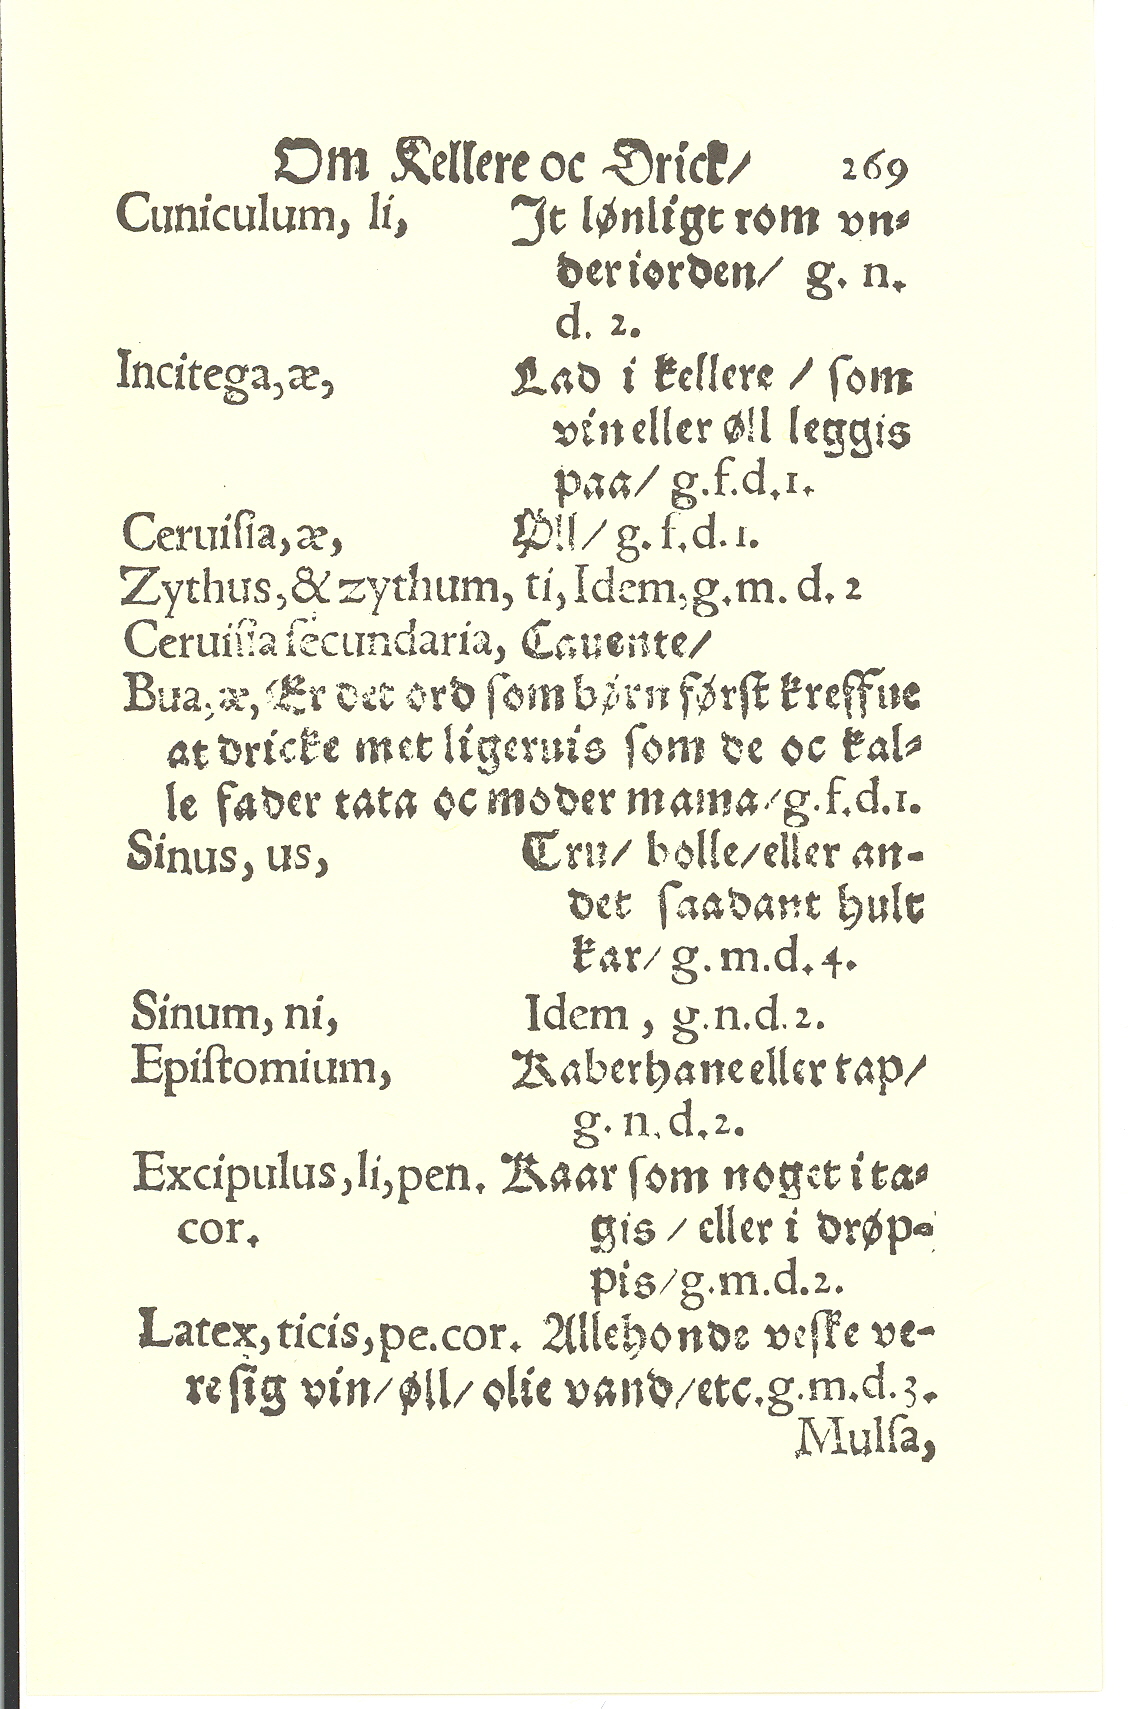 Om Kellere oc Drick/ 269
Cuniculum, li, Jt lønligt rom vn⸗
der iorden/ g. n.
d. 2.
Incitega, æ, Lad i kellere / ſom
vin eller øll leggis
paa/ g.f.d.1.
Ceruiſia, æ, Øll/ g.f.d.1.
Zythus, & zythum, ti, Idem, g.m.d.2
Ceruiſia ſecundaria, Cauente/
Bua, æ, Er det ord ſom børn først kreffue
at dricke met ligeruis ſom de oc kal⸗
le fader tata oc moder mama/g.f.d.1.
Sinus, us, Tru/ bolle/eller an-
det ſaadant hult
kar/ g.m.d.4.
Sinum, ni, Idem , g.n.d.2.
Epiſtomium, Kaberhane eller tap/
g.n.d.2.
Excipulus, li, pen. Kaar ſom noget i ta⸗
cor. gis / eller i drøp-
pis/g.m.d.2.
Latex, ticis, pe.cor. Allehonde veſke ve-
re ſig vin/ øll/ olie vand/etc.g.m.d.3.
Mulſa,